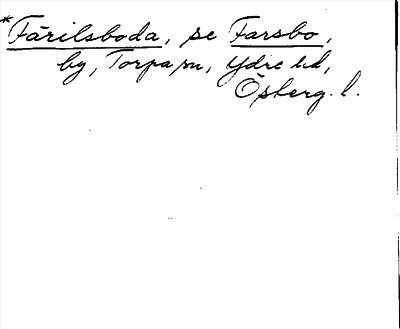 *Färilsboda, se Farsbo,
by, Torpa sn, Ydre hd,
Österg. l.